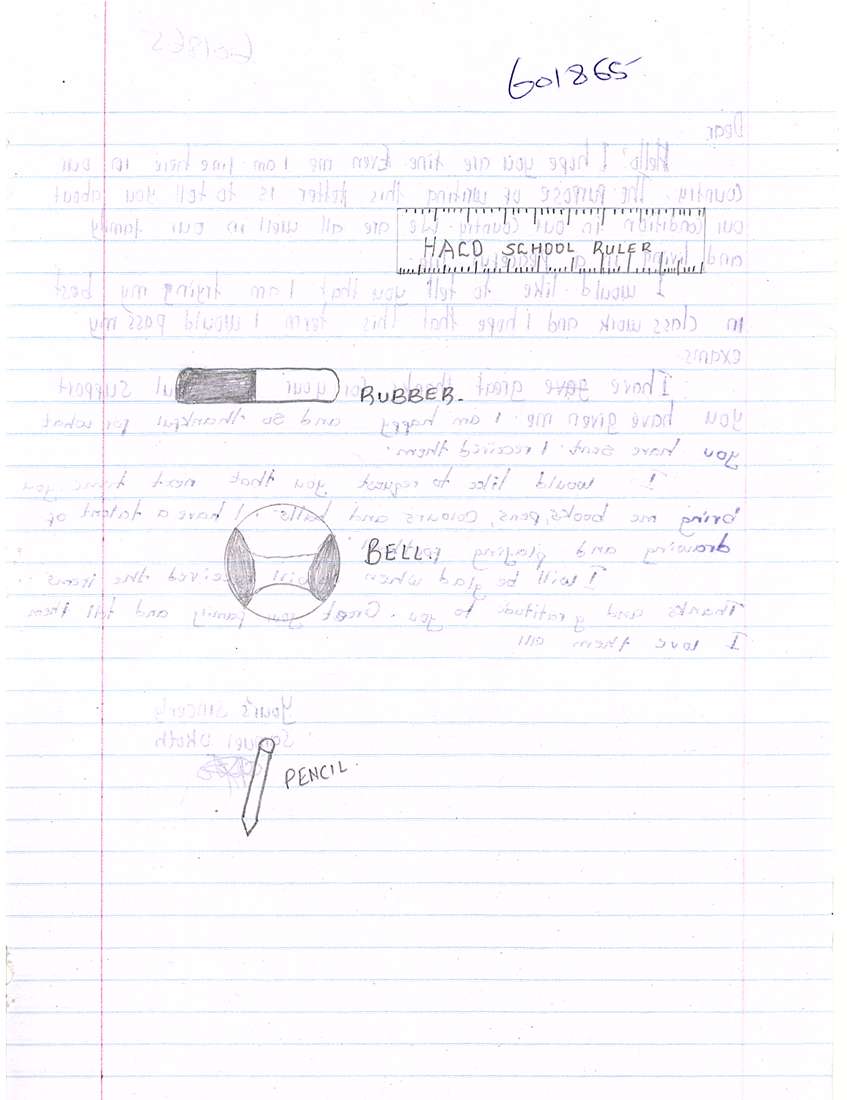 601865
HACO SCHOOL RULER
RUBBER.
BELL.
PENCIL.
601865
Dear
Hello? I hope you are fine Even me I am fine here in our
country. The purpose of writing this letter is to tell you about
our condition in our country. We are all well in our family
and living in a
I would like to tell you that I am trying my best
in class work and I hope that this term I would pass my
exams.
I have great thanks for your support
you have given me. I am happy and so thankful for what
you have sent. I received them.
I would like to request you that next time you
bring me books, pens, colours and balls. I have a talent of
drawing and playing
I will be glad when I will received the items
Thanks and gratitude to you. Greet you family and tell them
I love them all
Your's sincerly
Samuel Okoth